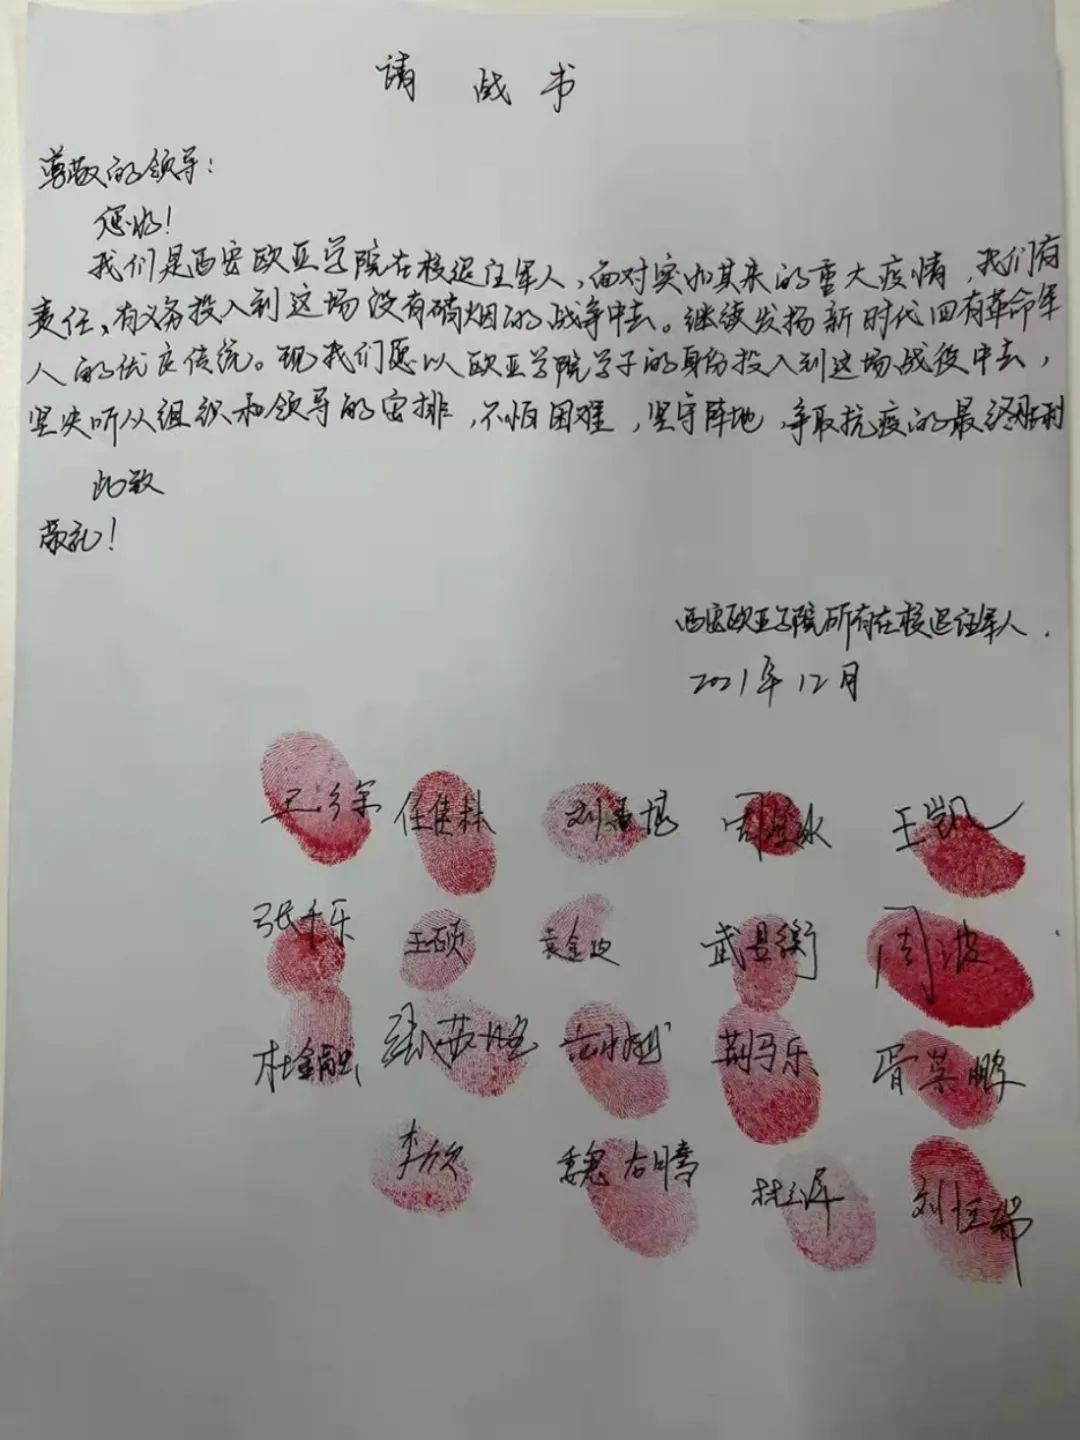 请战书
尊敬的领导：
您好！
我们是西安欧亚学院在校退役军人，面对突如其来的重大疫情，我们有
责任、有义务投入到这场没有硝烟的战争中去。继续发扬新时代四有革命军
人的优良传统。现我们愿以欧亚学院学子的身份投入到这场战役中去，
坚决听从组织和领导的安排，不怕困难，坚守阵地，争取抗疫的最终胜利
此致
敬礼！
西安欧亚学院所有在校退役军人.
2021年12月
任佳林 王凯
张千乐 王硕 武昱衡 周波
杜金融 荆马乐 胥英鹏
李欣 魏右腾